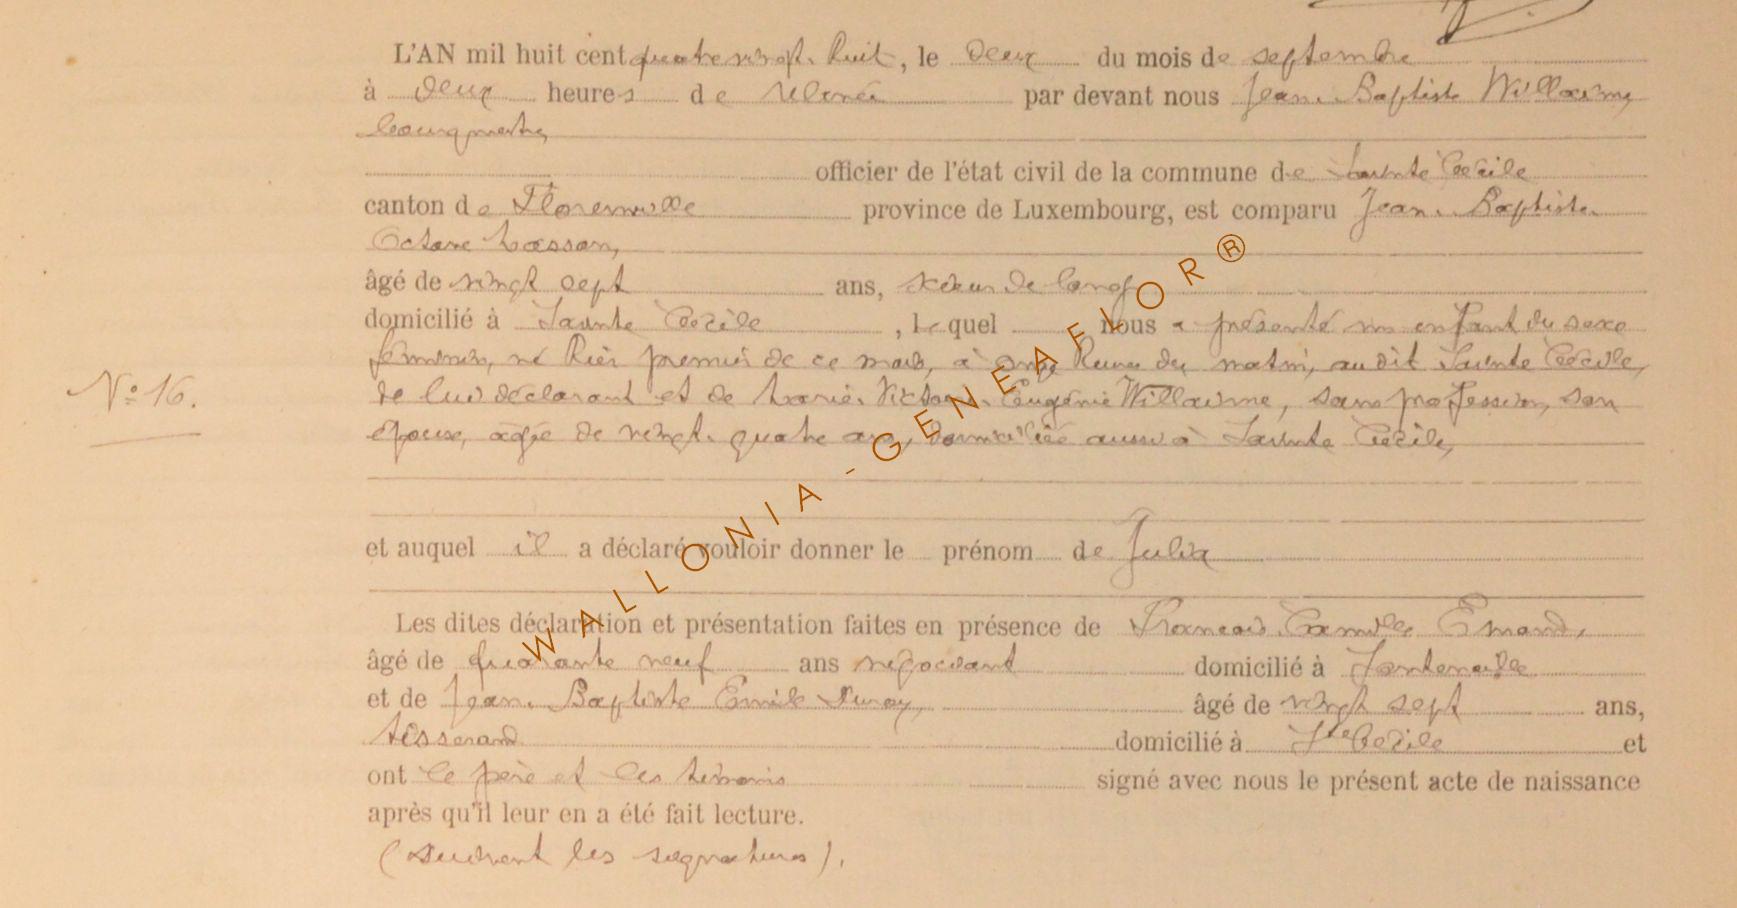 L'AN mil huit cent quatre vingt. huit, le deux du mois de septembre
à deux heures de relevée par devant nous Jean. Baptiste Willaume,
bourgmestre,
officier de l'état civil de la commune de Sainte Cécile
canton de Florenville province de Luxembourg, est comparu Jean. Baptiste.
Octave Masson,
âgé de vingt sept ans, scieur de long,
domicilié à Sainte Cécile , lequel nous a présenté un enfant du sexe
féminin, né hier premier de ce mois, à onze heures du matin, au dit Sainte Cécile,
N° 16.
de lui déclarant et de Marie. Victoire. Eugénie Willaume, sans profession, son
épouse, agée de vingt. quatre ans, domiciliée aussi à Sainte Cécile,
et auquel il a déclaré vouloir donner le prénom de Julia
Les dites déclaration et présentation faites en présence de François Camille
âgé de quarante neuf ans négociant domicilié à Fontenoille
et de Jean. Baptiste Emile âgé de vingt sept ans,
tisserand domicilié à Ste Cécile et
ont le père et les témoins signé avec nous le présent acte de naissance
après qu'il leur en a été fait lecture.
(suivent les signatures).
WALLONIA-GENEAFLOR®